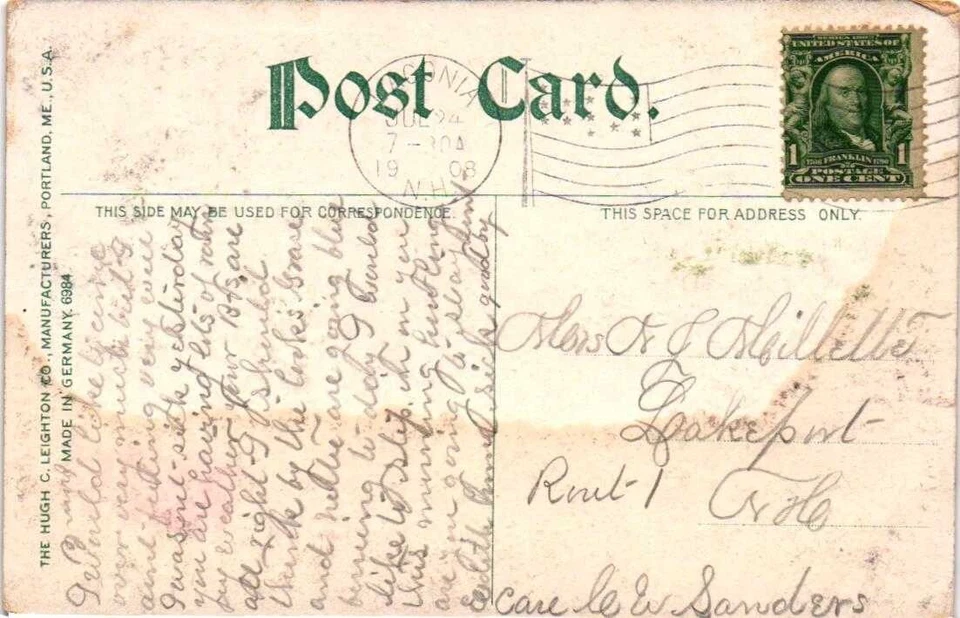 Post Card.
LACONIA
JUL 24
7-30A
1908
N.H.
SERIES 1902
UNITED STATES OF
AMERICA
1 1706 FRANKLIN 1790 1
POSTAGE
ONE CENT
THIS SIDE MAY BE USED FOR CORRESPONDENCE.
THIS SPACE FOR ADDRESS ONLY.
THE HUGH C. LEIGHTON CO., MANUFACTURERS, PORTLAND, ME., U.S.A.
MADE IN GERMANY. 6984
I Would love to
over very much the bed I
and very
I was sick yesterday
you are having lots of rain
weather your Bfs, are
all right I should
think by the looks Grace
and Nettie are going blue
to-day I
like to step in on you
this morning how long
are you going to stay
Edith good by
Mrs N J Millette
Lakeport
Rout-1
N H
care C W Sanders